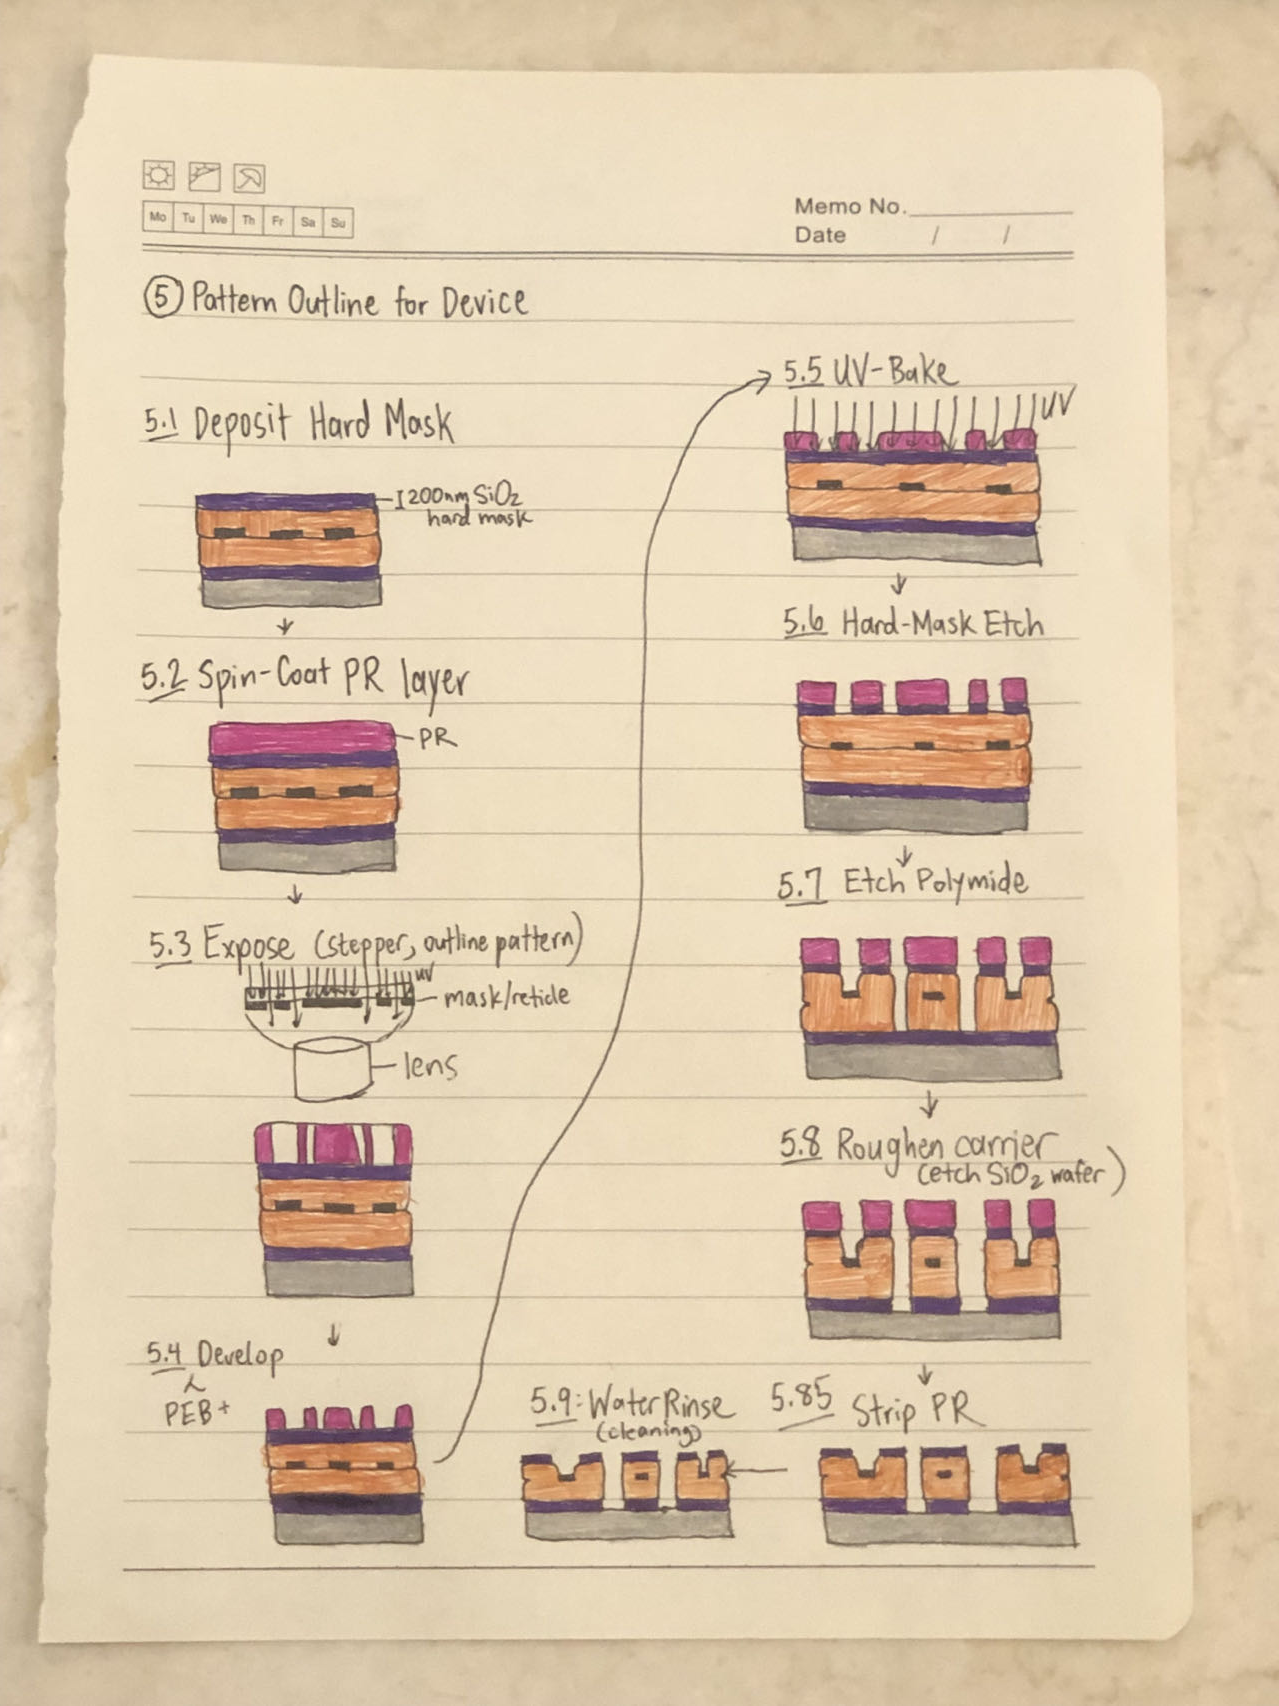 Mo Tu We Th Fr Sa Su
Memo No.
Date / /
⑤ Pattern Outline for Device
5.1 Deposit Hard Mask
200nm SiO₂
hard mask
5.2 Spin-Coat PR layer
PR
5.3 Expose (stepper, outline pattern)
UV
mask/reticle
lens
5.4 Develop
PEB+
5.5 UV-Bake
UV
5.6 Hard-Mask Etch
5.7 Etch Polymide
5.8 Roughen carrier
(etch SiO₂ wafer)
5.85 Strip PR
5.9: Water Rinse
(cleaning)